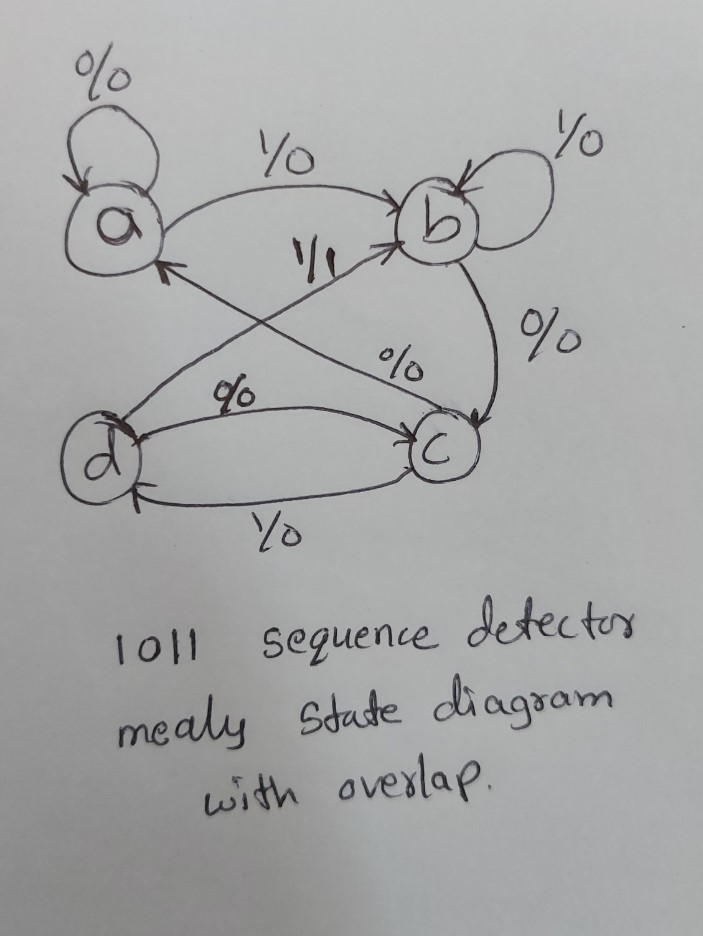 0/0
1/0
1/0
a
b
1/1
0/0
0/0
0/0
d
c
1/0
1011 sequence detector
mealy state diagram
with overlap.